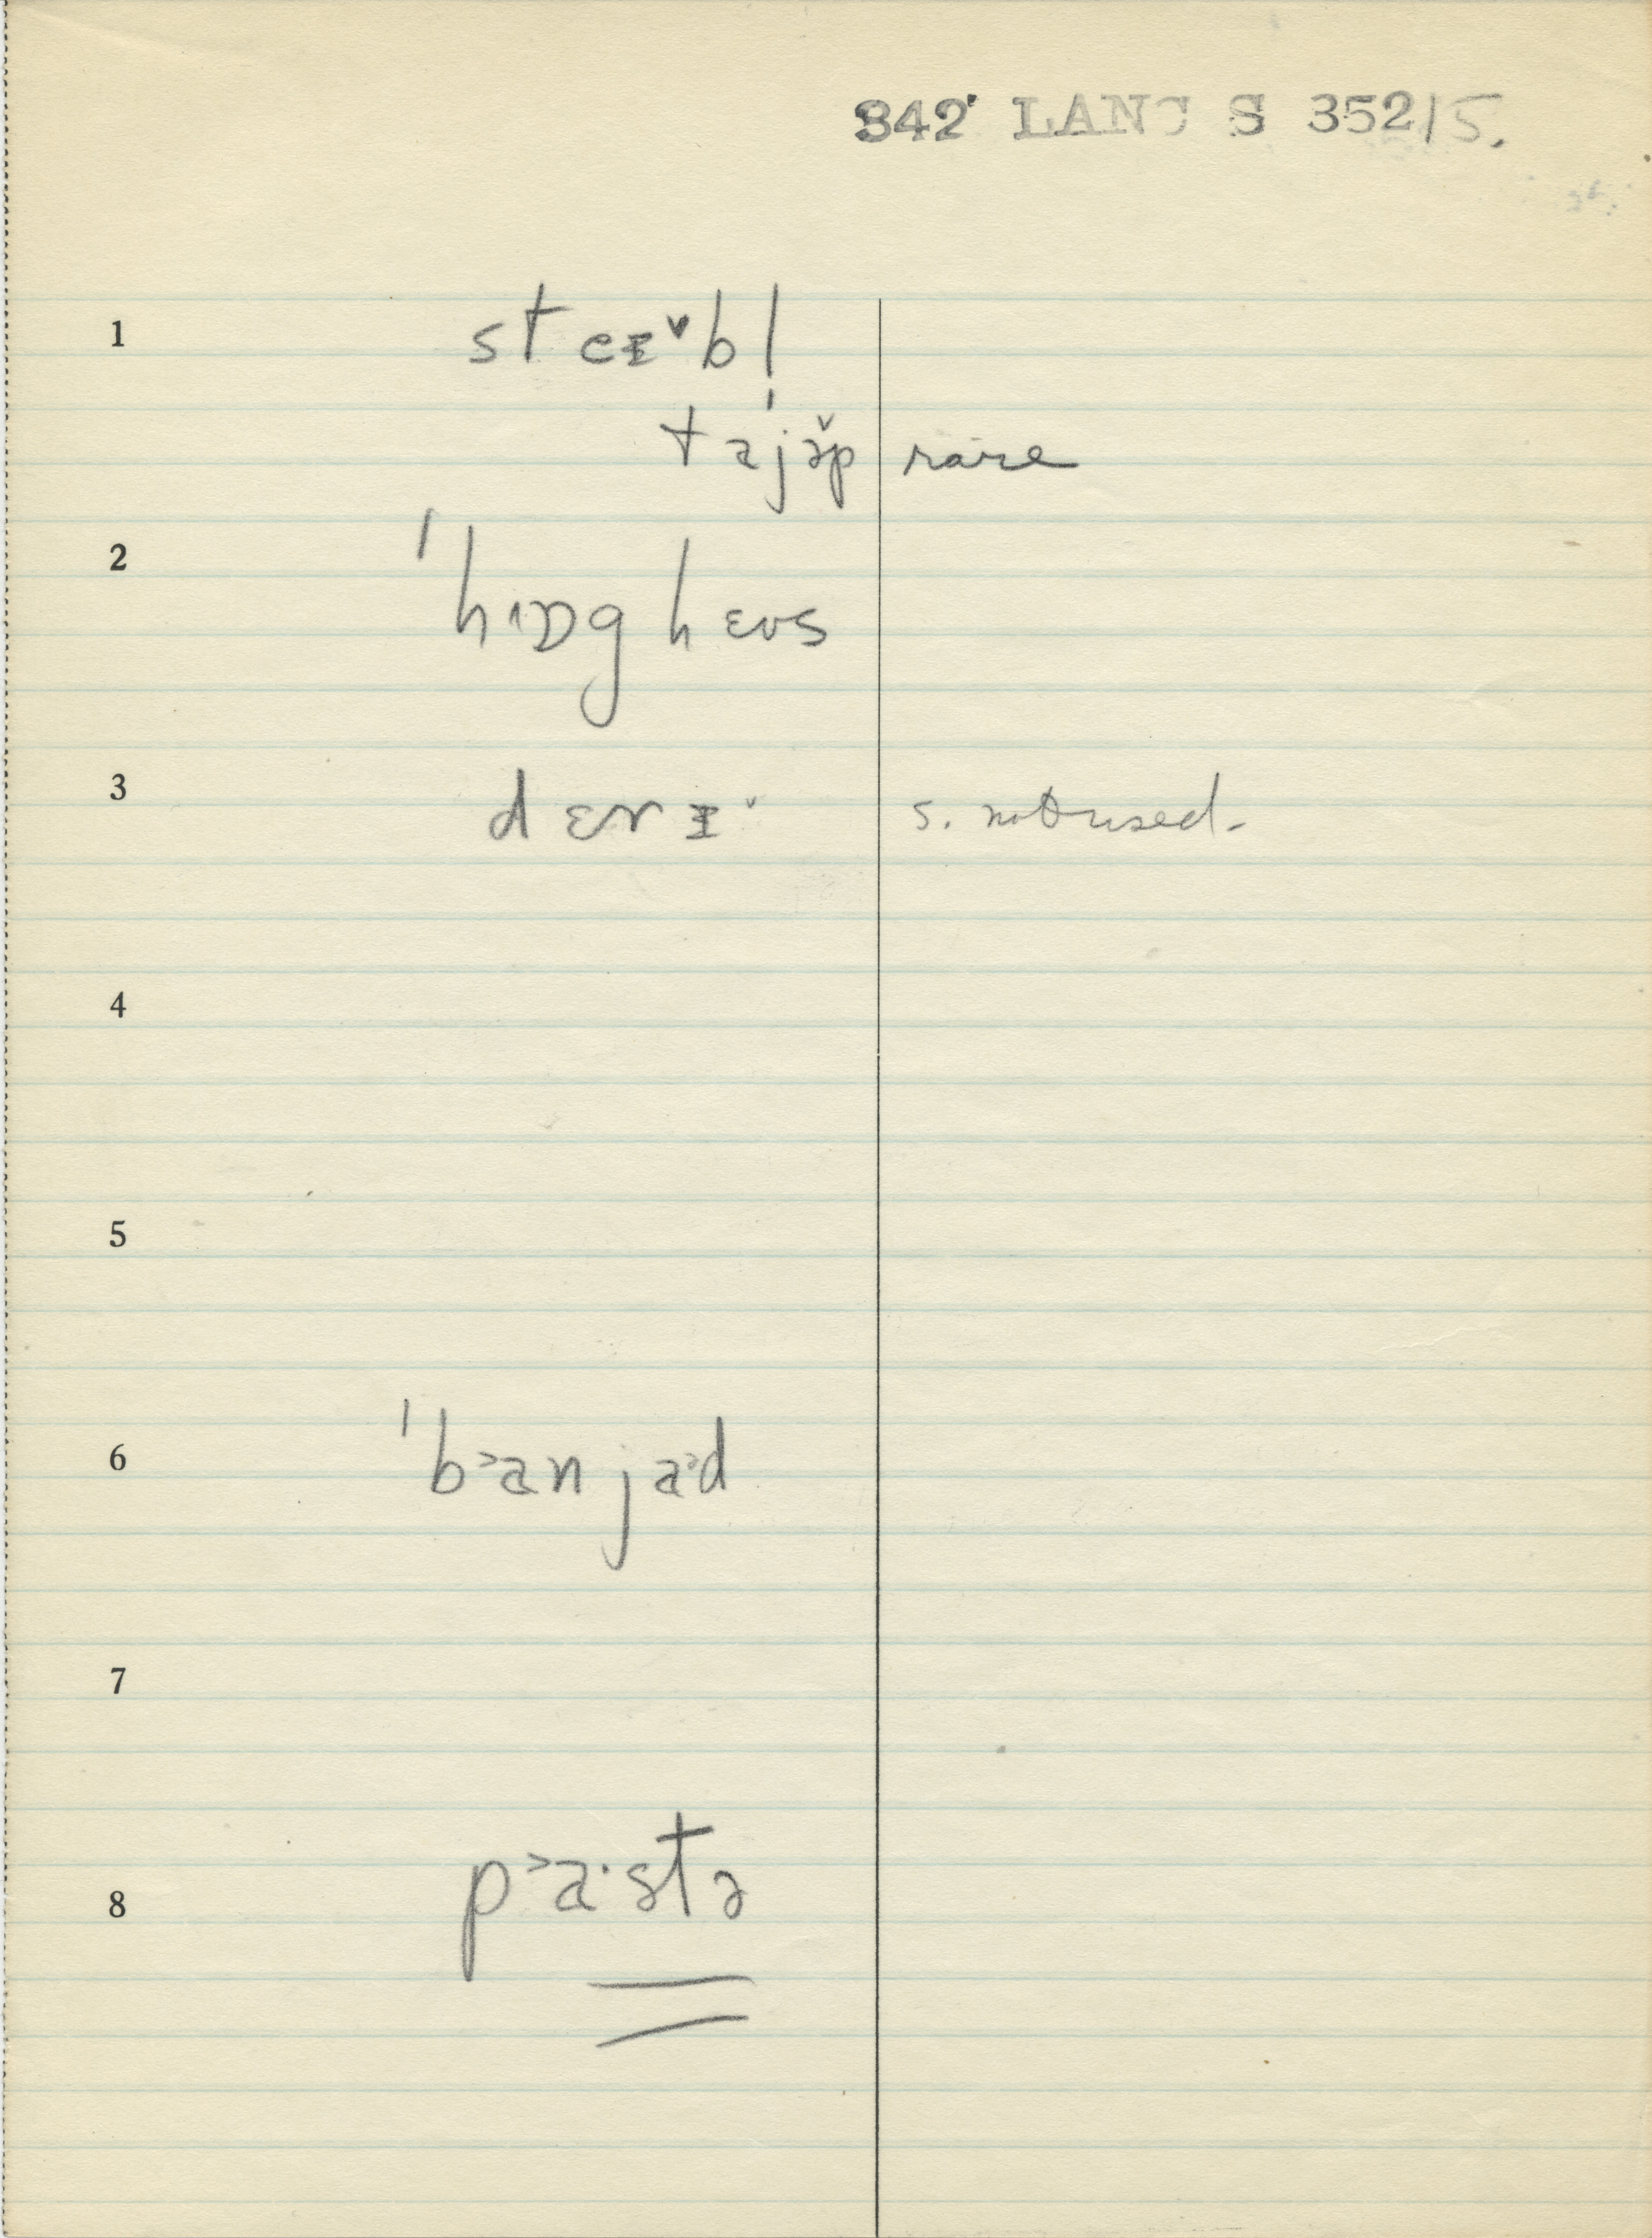 842 LANC S 352/5.
1 steɪˇbl̩
taɪjə̌p rare
2 ˈhɒg hɛʊs
3 dɛrɪˇ s. not used.
4
5
6 ˈb˃anja˃d
7
8 p˃a·stə